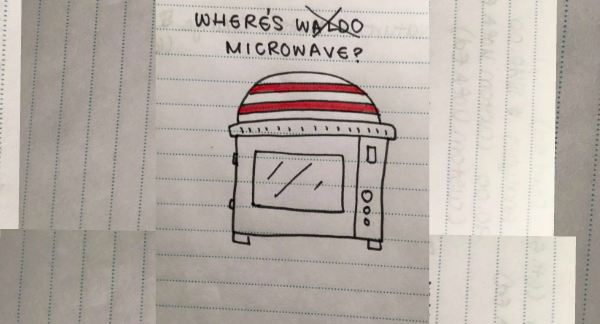 WHERE'S WALDO
MICROWAVE?